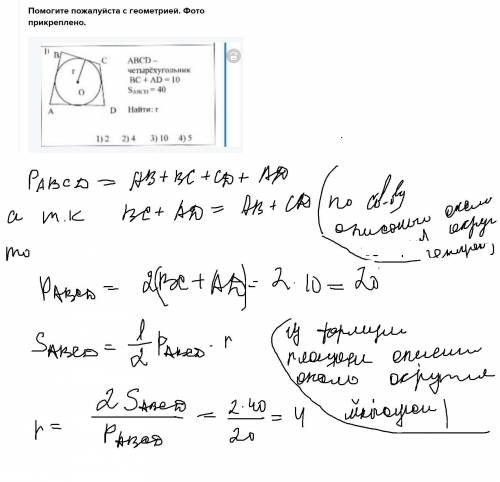 Помогите пожалуйста с геометрией. Фото
прикреплено.
B
C
r
O
A
D
ABCD –
четырёхугольник
BC + AD = 10
S_ABCD = 40
Найти: r
1) 2 2) 4 3) 10 4) 5
P_ABCD = AB + BC + CD + AD
а т.к BC + AD = AB + CD (по св-ву
описаного около
то
P_ABCD = 2(BC + AD) = 2 · 10 = 20
S_ABCD = 1/2 P_ABCD · r (из формулы
площади
около
r = 2 S_ABCD / P_ABCD = 2·40 / 20 = 4